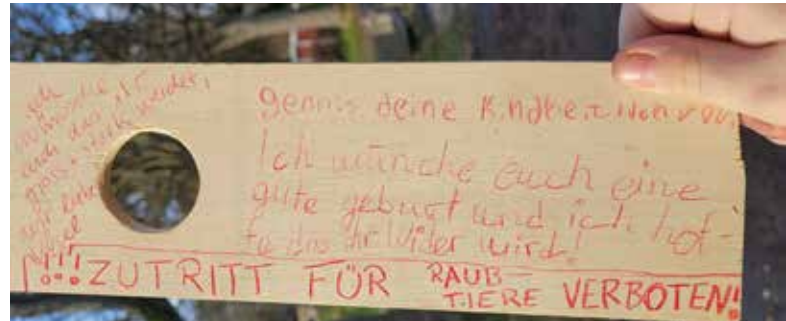 Ich
wünsche
euch das ihr
groß + stark werdet,
ihr lieben
Vögel
genies deine Kindheit
Ich wünche euch eine
gute geburt und ich hof-
fe das ihr wider wird!
!!! ZUTRITT FÜR RAUB-
TIERE VERBOTEN!